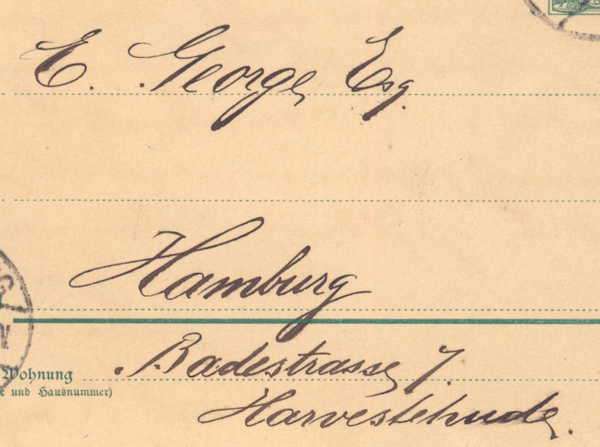 E. George Esq.
Hamburg
Wohnung
und Hausnummer)
Badestrasse 7.
Harvestehude.